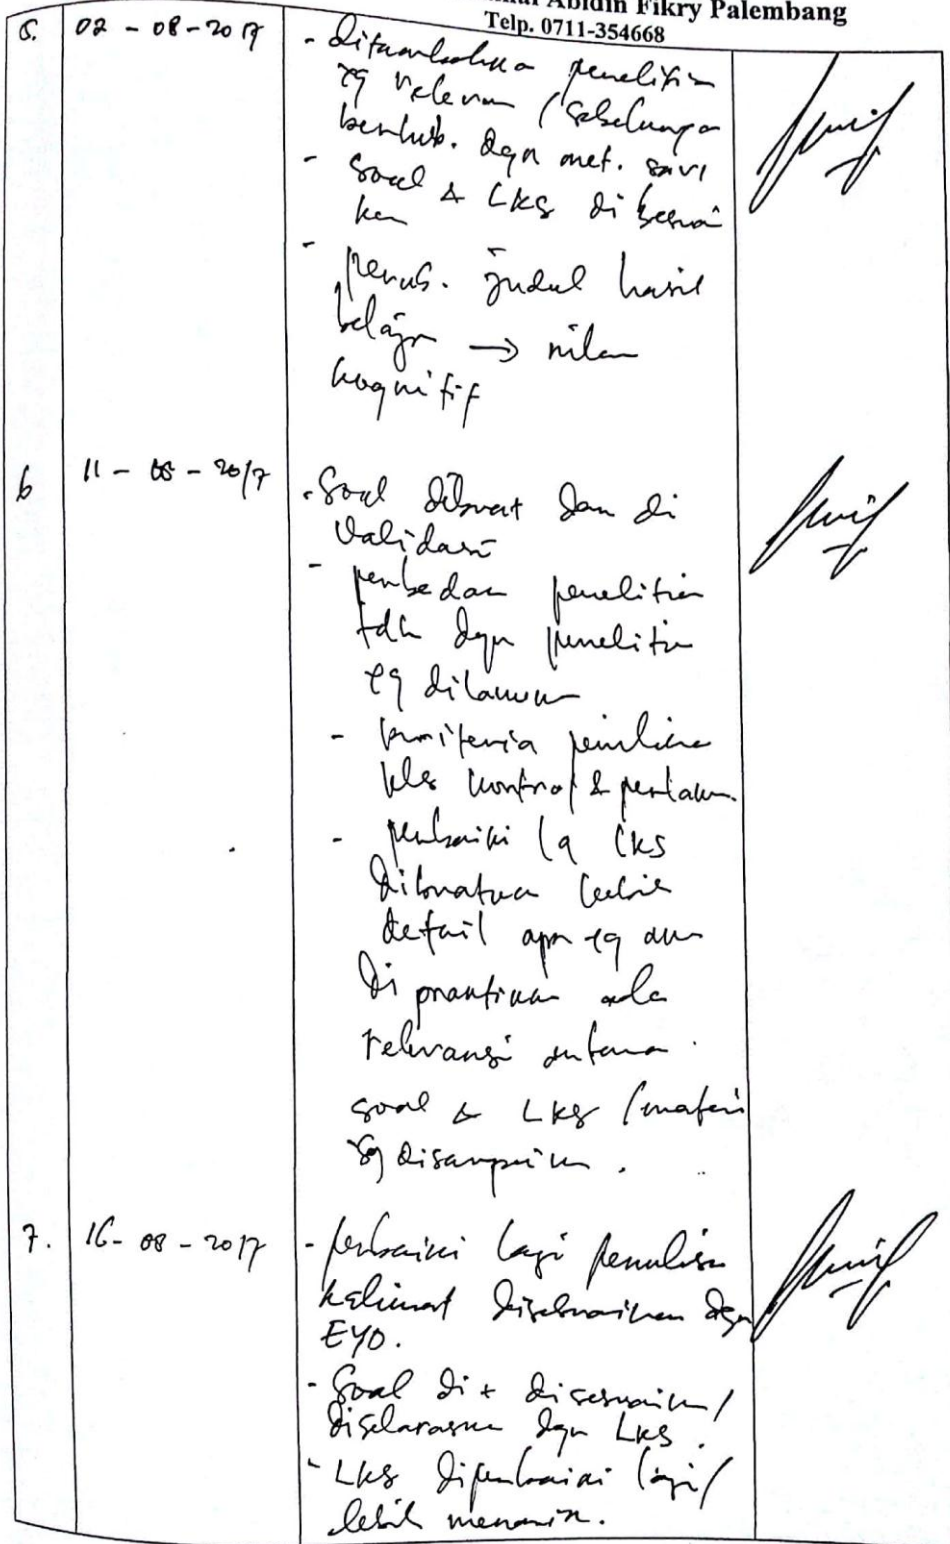 Abidin Fikry Palembang
Telp. 0711-354668
5. 02 - 08 - 2017
- ditambahka penelitian
yg relevan / sebelumnya
berhub. dgn met. savi
- Soal & LKS di sesuai
kan
- perub. judul hasil
belajar → nilai
kognitif
6 11 - 08 - 2017
- Soal dibuat dan di
validasi
- perbedaan penelitian
tdh dgn penelitian
yg dilakukan
- kriteria pemilihan
kls kontrol & perlakuan.
- perbaiki lg LKS
dibuatkan lebih
detail apa yg akan
di praktikum ada
relevansi antara
soal & LKS / materi
yg disampaikan.
7. 16 - 08 - 2017
- perbaiki lagi penulisan
kalimat disesuaikan dgn
EYD.
- Soal di + disesuaikan /
diselaraskan dgn LKS.
- LKS diperbaiki lagi /
lebih menarik.